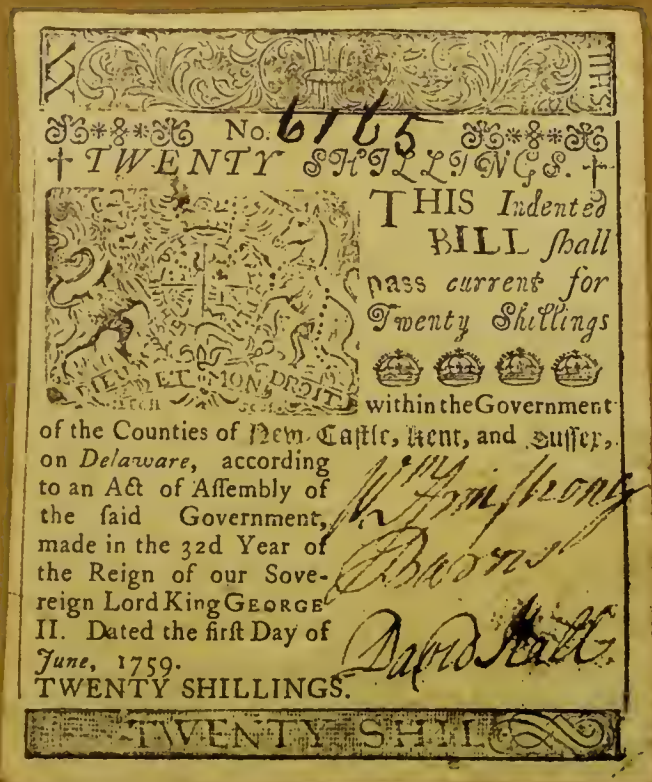 No. 6165
TWENTY SHILLINGS.
THIS Indented
BILL ſhall
paſs current for
Twenty Shillings
DIEU ET MON DROIT
within the Government
of the Counties of New-Caſtle, Kent, and Suſſex,
on Delaware, according
to an Act of Aſſembly of
the ſaid Government,
made in the 32d Year of
the Reign of our Sove-
reign Lord King GEORGE
II. Dated the firſt Day of
June, 1759.
TWENTY SHILLINGS.
Wm Armſtrong
David Hall
TWENTY SHIL